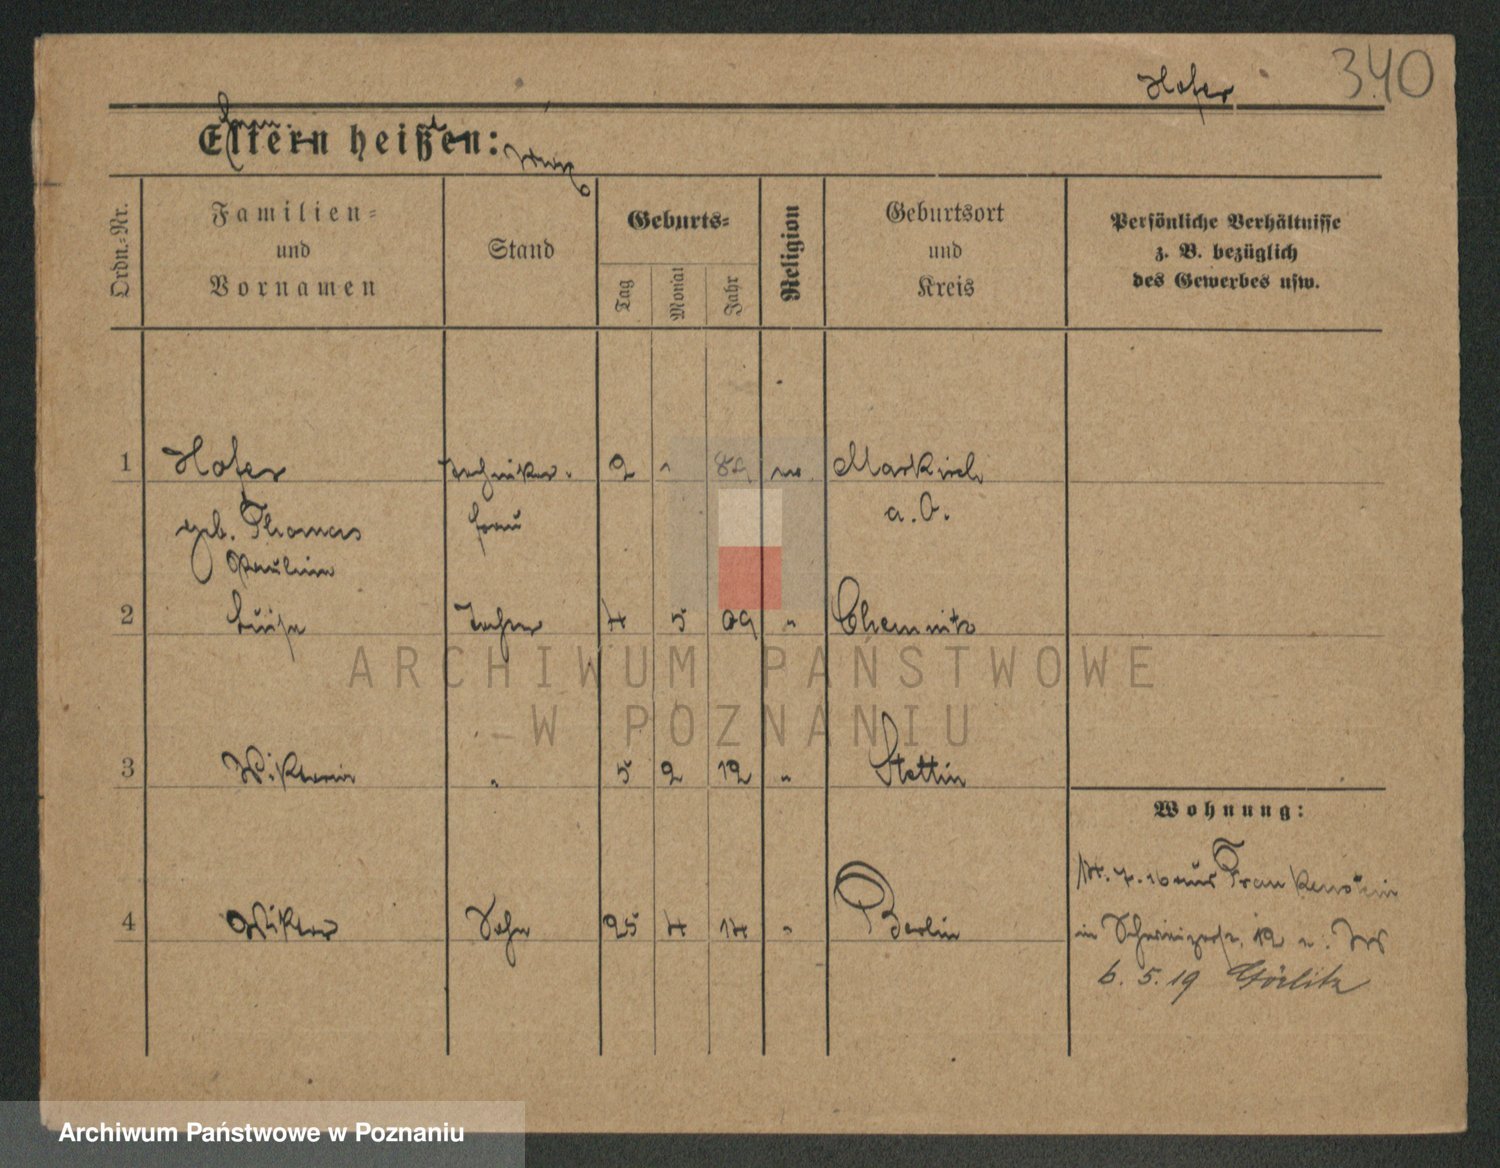 Hofer 340
Eltern heißen:
Ordn.-Nr.
Familien-
und
Vornamen
Stand
Geburts-
Tag
Monat
Jahr
Religion
Geburtsort
und
Kreis
Persönliche Verhältnisse
z. B. bezüglich
des Gewerbes usw.
1 Hofer Techniker- 2 89 Markirch
geb. Thomas frau a. O.
Pauline
2 Luise Tochter 4 5 09 " Chemnitz
ARCHIWUM PAŃSTWOWE
W POZNANIU
3 Viktoria " 5 2 12 " Stettin
Wohnung:
aus Frankenstein
4 Viktor Sohn 25 4 14 " Berlin
in 12
6. 5. 19 Görlitz
Archiwum Państwowe w Poznaniu